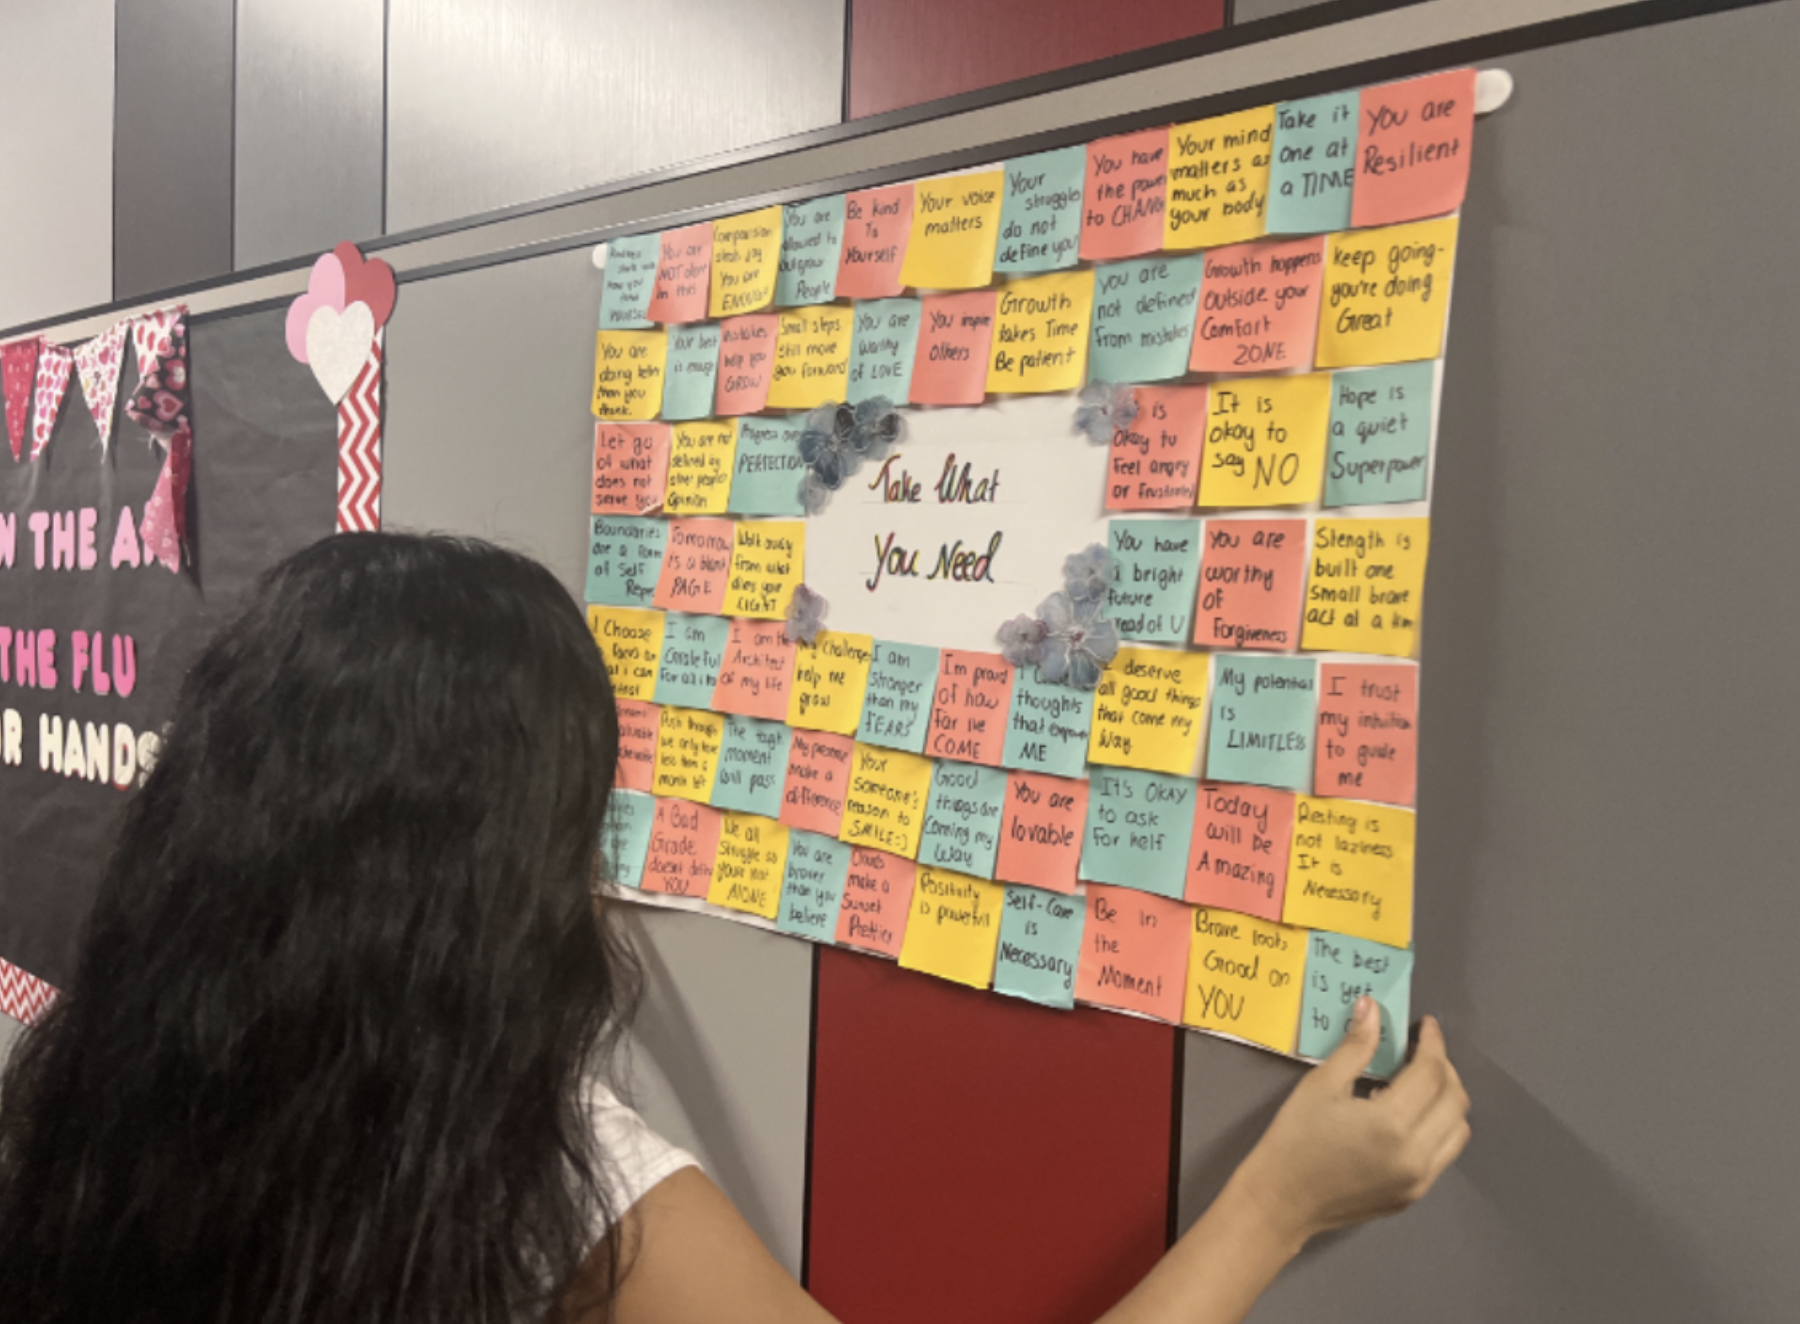 THE
THE FLU
HANDS
Take What
You Need
You are
NOT alone
in this
Comparision
steals joy
You are
ENOUGH
You are
allowed to
outgrow
People
Be kind
To
Yourself
Your voice
matters
Your
struggles
do not
define you
You have
the power
to CHANGE
Your mind
matters as
much as
your body
Take it
one at
a TIME
You are
Resilient
You are
doing better
than you
think.
Your best
is enough
mistakes
help you
GROW
Small steps
still move
you forward
You are
Worthy
of LOVE
You inspire
Others
Growth
takes Time
Be patient
you are
not defined
from mistakes
Growth happens
outside your
Comfort
ZONE
keep going-
you're doing
Great
Let go
of what
does not
serve you
You are not
defined by
other people's
Opinion
Progress over
PERFECTION
is
Okay to
Feel angry
or frustrated
It is
okay to
say NO
Hope is
a quiet
Superpower
Boundaries
are a form
of Self
Tomorrow
is a blank
PAGE
Walk away
from what
dims your
LIGHT
You have
a bright
future
of U
You are
worthy
of
Forgiveness
Stength is
built one
small brave
act at a
I Choose
I can
I am
Grateful
For all
I am the
Architect
of my life
My challenges
help me
grow
I am
stronger
than my
FEARS
Im proud
of how
far ive
COME
thoughts
that empower
ME
deserve
all good things
that come my
Way
My potential
is
LIMITLESS
I trust
my intuition
to guide
me
Push through
we only have
less than a
month left
The tough
moment
will pass
My presence
make a
difference
Your
Someone's
reason to
SMILE:)
Good
things are
Coming my
Way
You are
lovable
It's OKAY
to ask
for help
Today
will be
Amazing
Resting is
not laziness
It is
Necessary
A Bad
Grade
doesnt define
YOU
We all
struggle so
your not
ALONE
You are
braver
than you
believe
Clouds
make a
Sunset
Prettier
Positivity
is powerful
Self-Care
is
Necessary
Be in
the
Moment
Brave looks
Good on
YOU
The best
is yet
to